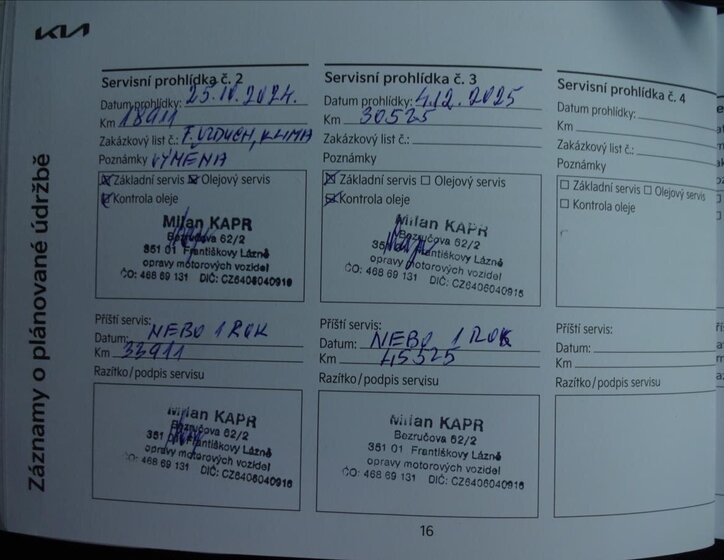 KIA
Záznamy o plánované údržbě
Servisní prohlídka č. 2
Datum prohlídky: 25.10.2024.
Km 18911
Zakázkový list č.: F. VZDUCH, KLIMA
Poznámky VÝMĚNA
Základní servis Olejový servis
Kontrola oleje
Milan KAPR
Bezručova 62/2
351 01 Františkovy Lázně
opravy motorových vozidel
IČO: 468 69 131 DIČ: CZ6406040916
Příští servis:
Datum: NEBO 1 ROK
Km 33911
Razítko/podpis servisu
Milan KAPR
Bezručova 62/2
351 01 Františkovy Lázně
opravy motorových vozidel
IČO: 468 69 131 DIČ: CZ6406040916
Servisní prohlídka č. 3
Datum prohlídky: 4.12.2025
Km 30525
Zakázkový list č.:
Poznámky
Základní servis Olejový servis
Kontrola oleje
Milan KAPR
Bezručova 62/2
351 01 Františkovy Lázně
opravy motorových vozidel
IČO: 468 69 131 DIČ: CZ6406040916
Příští servis:
Datum: NEBO 1 ROK
Km 45525
Razítko/podpis servisu
Milan KAPR
Bezručova 62/2
351 01 Františkovy Lázně
opravy motorových vozidel
IČO: 468 69 131 DIČ: CZ6406040916
Servisní prohlídka č. 4
Datum prohlídky:
Km
Zakázkový list č.:
Poznámky
Základní servis Olejový servis
Kontrola oleje
Příští servis:
Datum:
Km
Razítko/podpis servisu
16